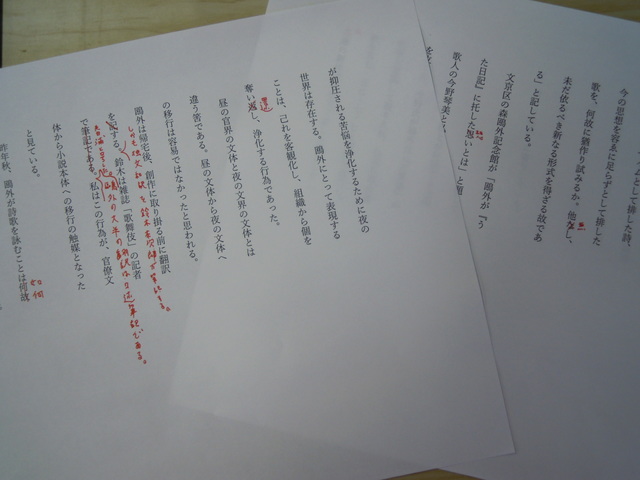 ムとして排した詩、
今の思想を容るに足らずとして排した
歌を、何故に猶作り試みるか。他なし、
未だ依るべき新なる形式を得ざる故であ
る」と記している。
文京区の森鷗外記念館が「鷗外が『う
た日記』に托した想いとは」と題
歌人の今野琴美と
が抑圧される苦悩を浄化するために夜の
世界は存在する。鷗外にとって表現する
ことは、己れを客観化し、組織から個を
奪い返し、浄化する行為であった。
還
昼の官界の文体と夜の文界の文体とは
違う筈である。昼の文体から夜の文体へ
の移行は容易ではなかったと思われる。
鷗外は帰宅後、創作に取り掛る前に翻訳
しかも独文和訳を鈴木 筆記する。
する。鈴木は雑誌「歌舞伎」の記者
鷗外の大半の翻訳は口述筆記である。
で筆記である。私はこの行為が、官僚文
体から小説本体への移行の触媒となった
と見ている。
昨年秋、鷗外が詩歌を詠むことは何故